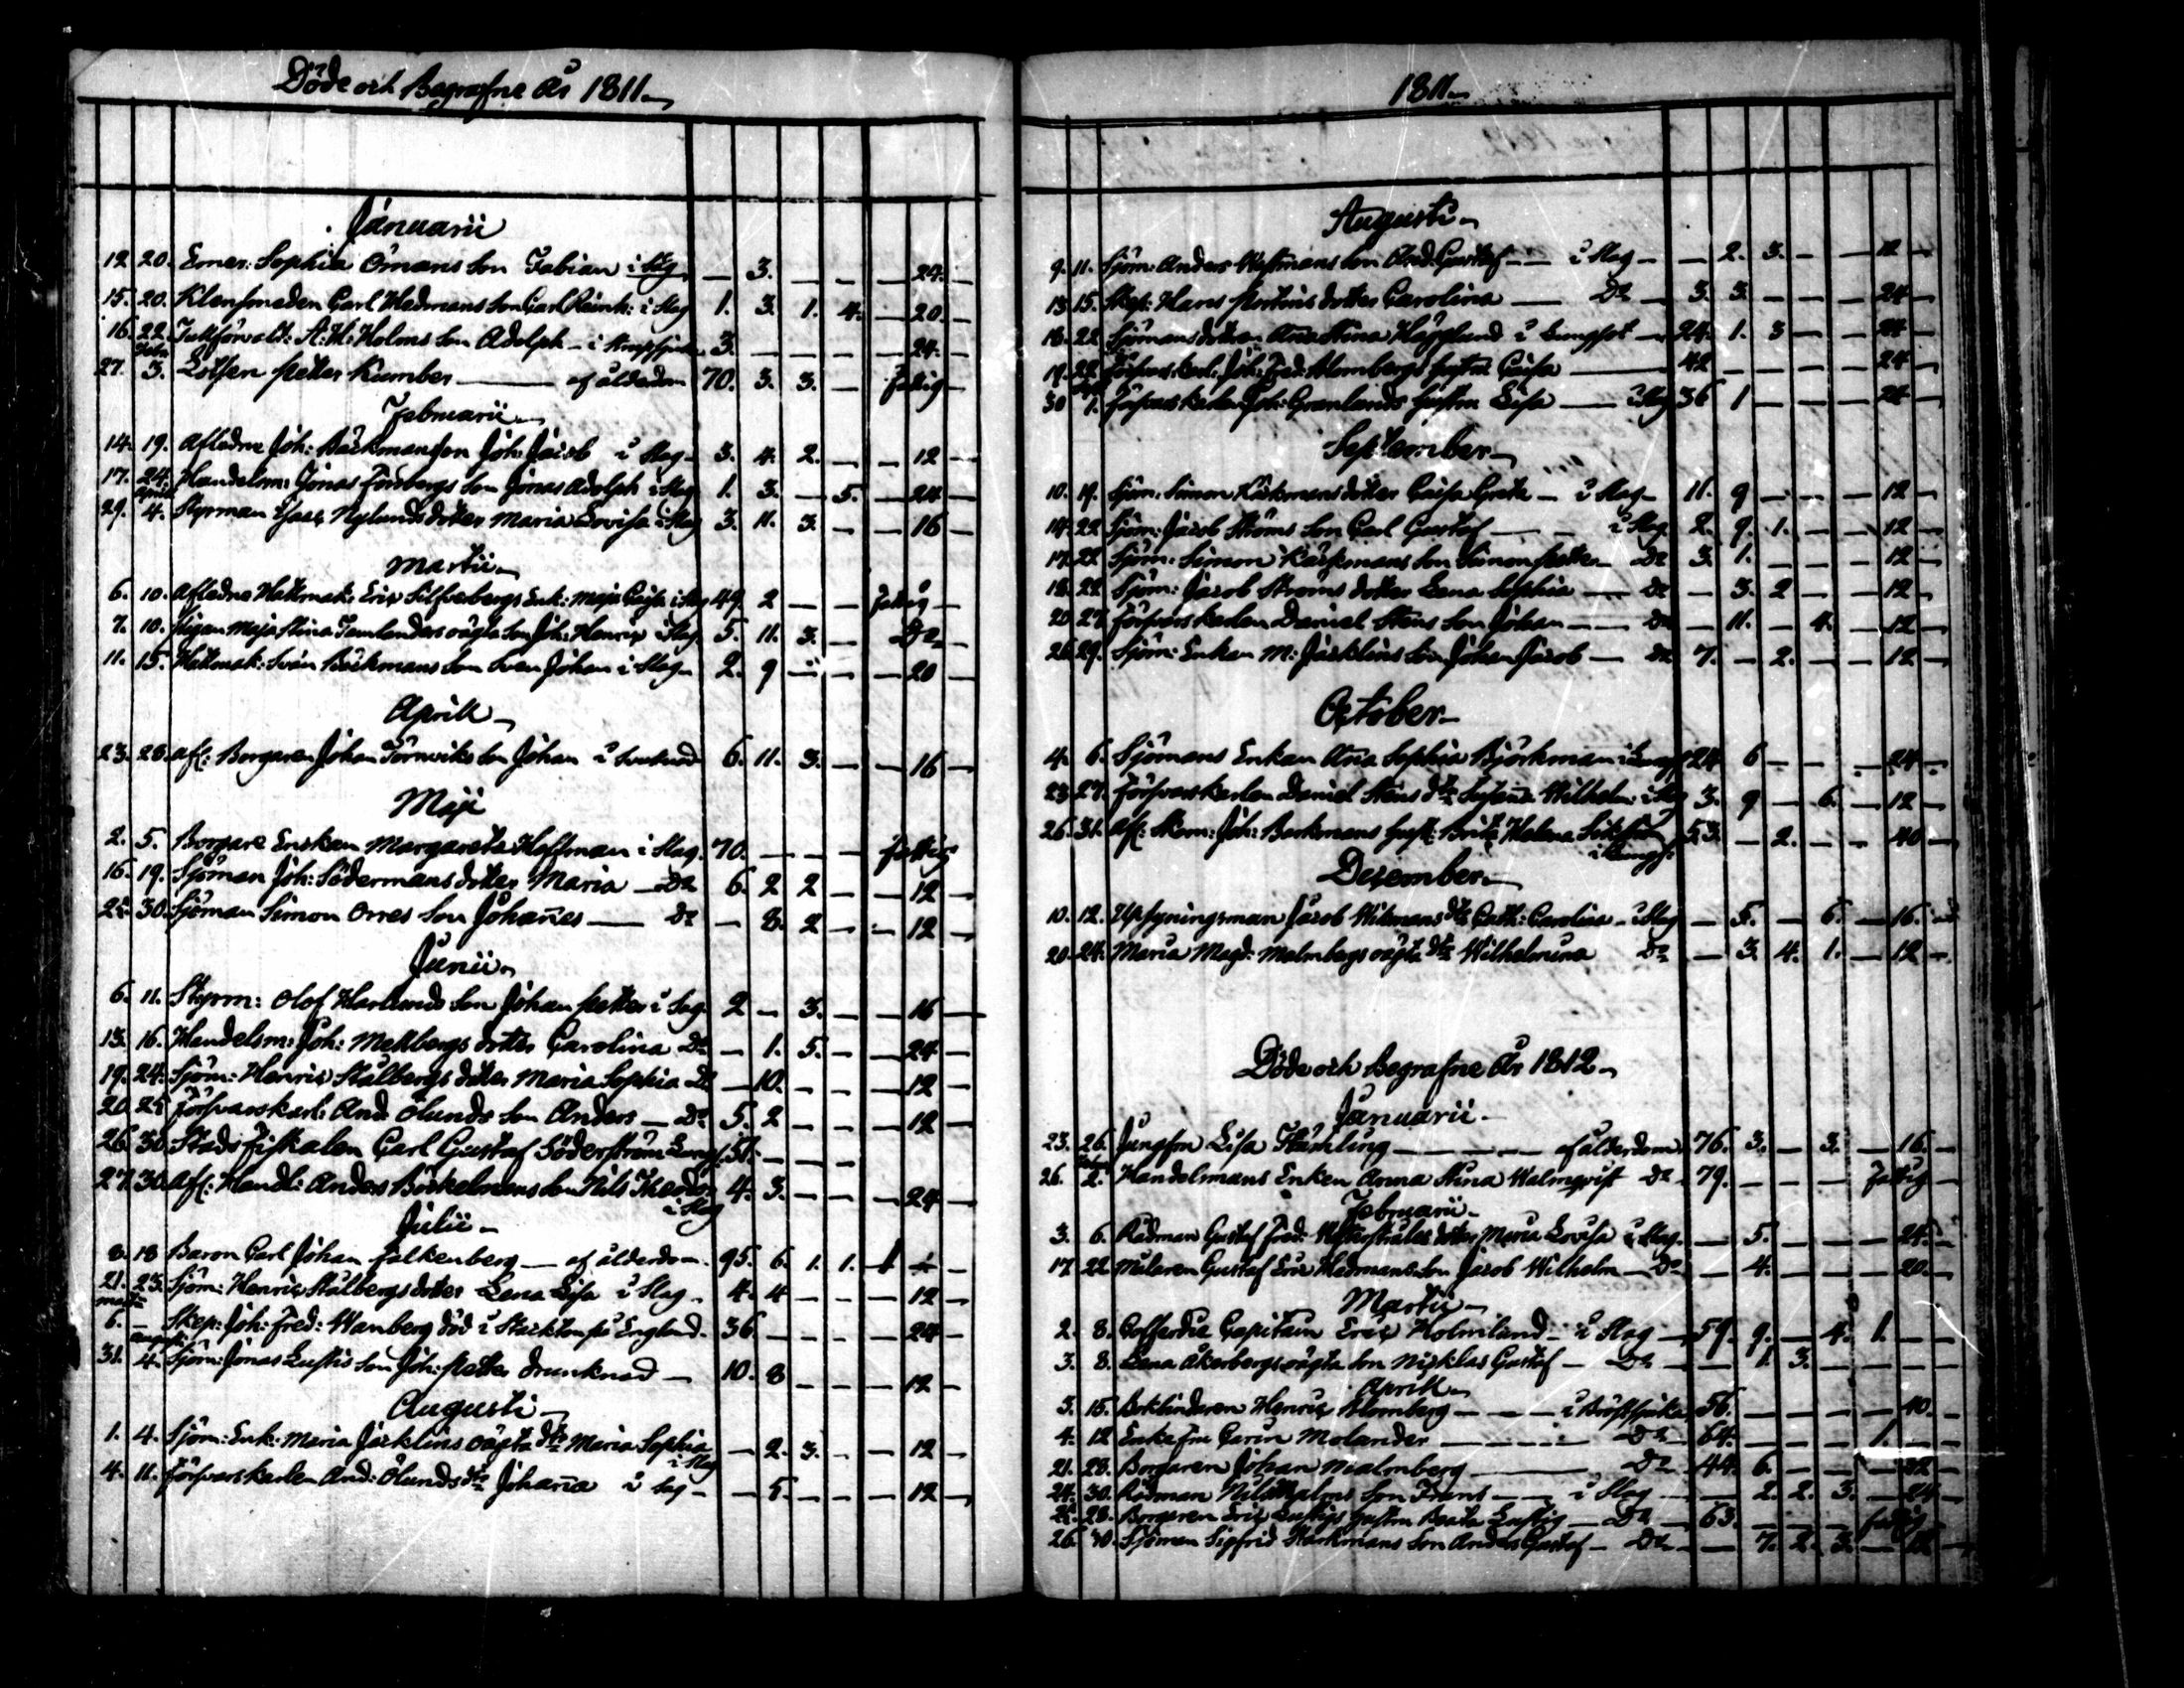 Döde och Begrafne År 1811
Januarii
12 20. Enter: Sophia Ömans Son Fabian i Slag — 3. — — — 24. —
15. 20. Klensmeden Carl Hedmans Son Carl Reinh: i Slag 1. 3. 1. 4. — 20. —
16. 22. Tullförvalt: A. H. Holms Son Adolph — i 3. — — — — 24. —
Febr.
27. 3. Lotsen Petter Kumber — af ålderdom 70. 3. 3. — fattig —
Februarii
14. 19. Afledne Joh: Bäckmans Son Joh: Jacob i Slag 3. 4. 2. — — 12 —
17. 24. Handelsm: Jonas Forsbergs Son Jonas Adolph i Slag 1. 3. — 5. — 24 —
April
29. 4. Styrman Isaac Nylunds dotter Maria Lovisa i Slag 3. 11. 3. — — 16 —
Martii
6. 10. Afledne Hattmak: Eric Silfverbergs Enk: Maja Cajsa i Slag 49 2 — — fattig —
7. 10. Pigan Maja Stina oägta Son Joh: Henric i Slag 5. 11. 3. — Do —
11. 15. Hattmak: Sven Bäckmans Son Sven Johan i Slag 2. 9 — — — 20 —
Aprill
23. 28. Afl: Borgaren Johan Törnviks Son Johan i 6. 11. 3. — — 16 —
Maji
2. 5. Borgare Enckan Margareta Hoffman i Slag. 70. — — — fattig
16. 19. Sjöman Joh: Södermans dotter Maria — Do 6. 2 2 — — 12 —
25. 30. Sjöman Simon Orres Son Johañes — Do — 8. 2 — — 12 —
Junii
6. 11. Styrm: Olof Harlunds Son Johan Petter i Slag 2 — 3. — — 16 —
13. 16. Handelsm: Joh: Mellbergs dotter Carolina Do — 1. 5. — — 24 —
19. 24. Sjöm: Henric Stålbergs dotter Maria Sophia Do — 10. — — — 12 —
20. 25 Försvarskarl: And: Ölunds Son Anders — Do 5. 2 — — — 12 —
26. 30 Stads Fiskalen Carl Gustaf Söderström 51. — — —
27. 30. Afl: Handl: Anders Böckelmans Son Nils Theodor 4. 3. — — — 24 —
i Slag
Julii
8. 13 Baron Carl Johan Falkenberg — af ålderdom. 95. 6. 1. 1. 1 —
21. 23. Sjöm: Henric Stålbergs dotter Lena Lisa i Slag. 4. 4 — — — 12 —
Martii
6. — Skep: Joh: Fred: Wanberg död i Stockton på England. 36 — — — — 24 —
Augusti
31. 4. Sjöm: Jonas Lustis Son Joh: Petter drunknad — 10. 8 — — — 12 —
Augusti
1. 4. Sjöm: Enk: Maria Jäcklins oägta dtr Maria Sophia — 2. 3. — — 12 —
i Slag
4. 11. Försvarskarlen And: Ölunds dtr Johaña i Slag — — 5. — — — 12 —
1811
Augusti
9. 11. Sjöm: Anders Son And: Gustaf — i Slag — — 2. 3. — — 12 —
13 15. Skep: Hans Martins dotter Carolina — Do — 3. 3. — — — 24 —
18. 22 Sjömans dotter Ana Stina Hägglund i Lungsot — 24. 1. 3 — — 24 —
19. 22 Försvars Karl: Joh: Fred: Holmbergs hustru Cajsa — 42 — — — — 24 —
Sept
30 1. Försvars Karlen Joh: Granlunds hustru Lisa — i Slag 36 1 — — — 24 —
September
10. 19. Sjöm: Simon Käckmans dotter Cajsa Greta — i Slag 11. 9 — — — 12 —
14. 22 Sjöm: Jacob Ströms Son Carl Gustaf — i Slag 2. 9. 1. — — 12 —
17. 22 Sjöm: Simon Käckmans Son Simon Petter Do 3. 1. — — — 12 —
18. 22 Sjöm: Jacob Ströms dotter Lena Sophia — Do — 3. 2 — — 12 —
20 27. Försvarskarlen Daniel Stens Son Johan — Do — 11. — 4. — 12 —
26. 29. Sjöm: Enkan M: Jäcklins Son Johan Jacob — Do 7. — 2. — — 12 —
October
4. 6. Sjömans Enkan Aña Sophia Björkman 24 6 — — — 24 —
23. 27. Försvarskarlen Daniel Stens dtr Wilhelm: i Slag 3. 9 — 6. — 12 —
26. 31. Afl: Skom: Joh: Backmans hust: Brita Helena 53. — 2. — — 40 —
December
10. 12. Upsyningsman Jacob Wikmans dtr Cath: Carolina i Slag — 5. — 6. — 16. —
20. 24. Maria Magd: Malmbergs oägta dtr Wilhelmina Do — 3. 4. 1. — 12 —
Döde och Begrafne År 1812
Januarii
23. 26. Jungfru Lisa — af ålderdom 76. 3. — 3. — 16. —
26. 2. Handelsmans Enkan Anna Stina Malmqvist Do 79. — — — fattig —
Februarii
3. 6. Rådman Gustaf Fred: dotter Maria Lovisa i Slag. — 5. — — — 24. —
17. 22 Målaren Gustaf Eric Hedmans Son Jacob Wilhelm — Do — 4. — — — 20. —
Martii
2. 8. Cofferdie Capitain Eric Holmlund — i Slag — 59. 9. — 4. 1. — —
3. 8. Lena Åkerbergs oägta Son Nicklas Gustaf — Do — — 1. 3. — — — —
Aprill
3. 15. Bokbinderen Henric Holmberg — i Bröstsjuka 56. — — — — 40. —
4. 12 Enke fru Carin Molander — Do — 64. — — — 1. — —
21. 23. Borgaren Johan Malmberg — Do 44. 6. — — — 32 —
24. 30. Rådman Son Frans — i Slag — — 2. 2. 3. — 24 —
25. 28. Borgaren Eric Lustigs hustru Beata Lustig — Do — 63. — — — fattig —
26. 30. Sjöman Sigfrid Son Anders Gustaf — Do — — 7. 2. 3. — 12 —